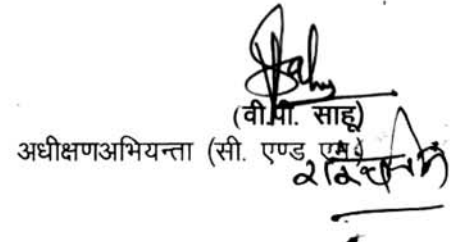 (वी.पी. साहू)
अधीक्षणअभियन्ता (सी. एण्ड एम)